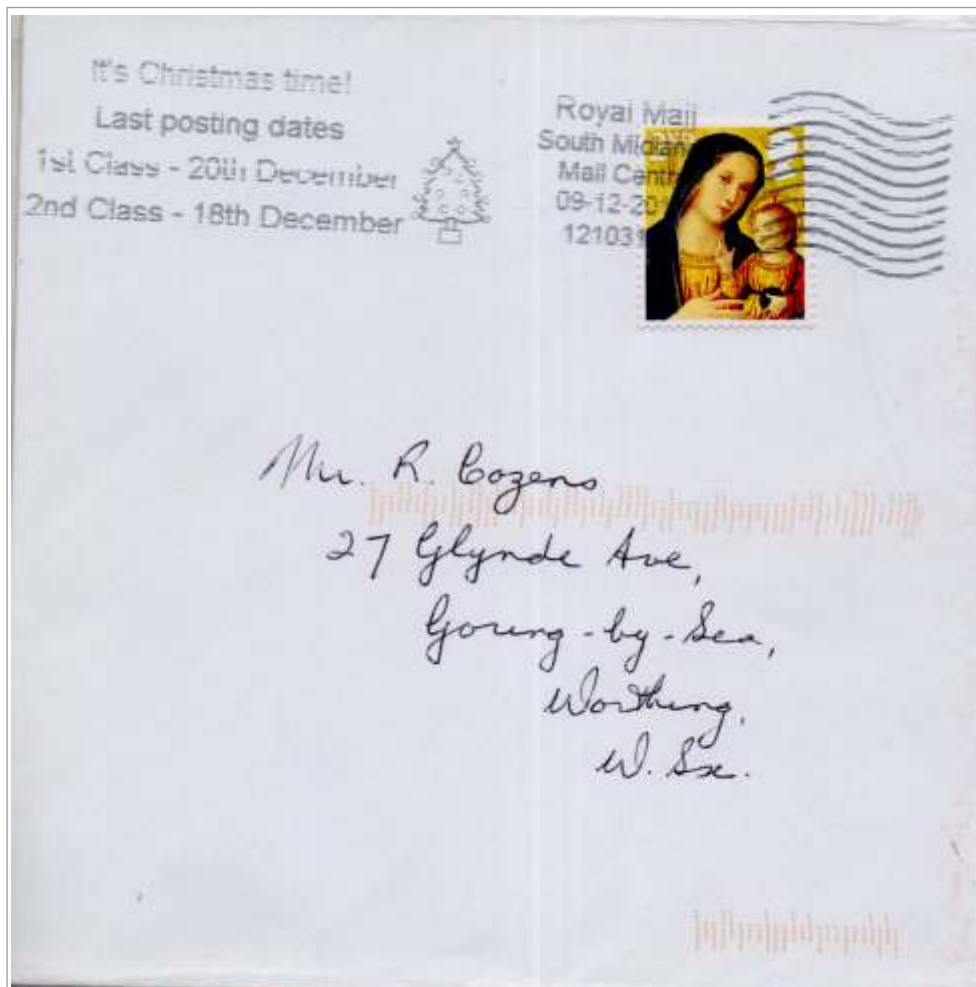 It's Christmas time!
Last posting dates
1st Class - 20th December
2nd Class - 18th December
Royal Mail
South
Mail
09-12-
Mr. R. Cozens
27 Glynde Ave,
Goring-by-Sea,
Worthing,
W. Sx.